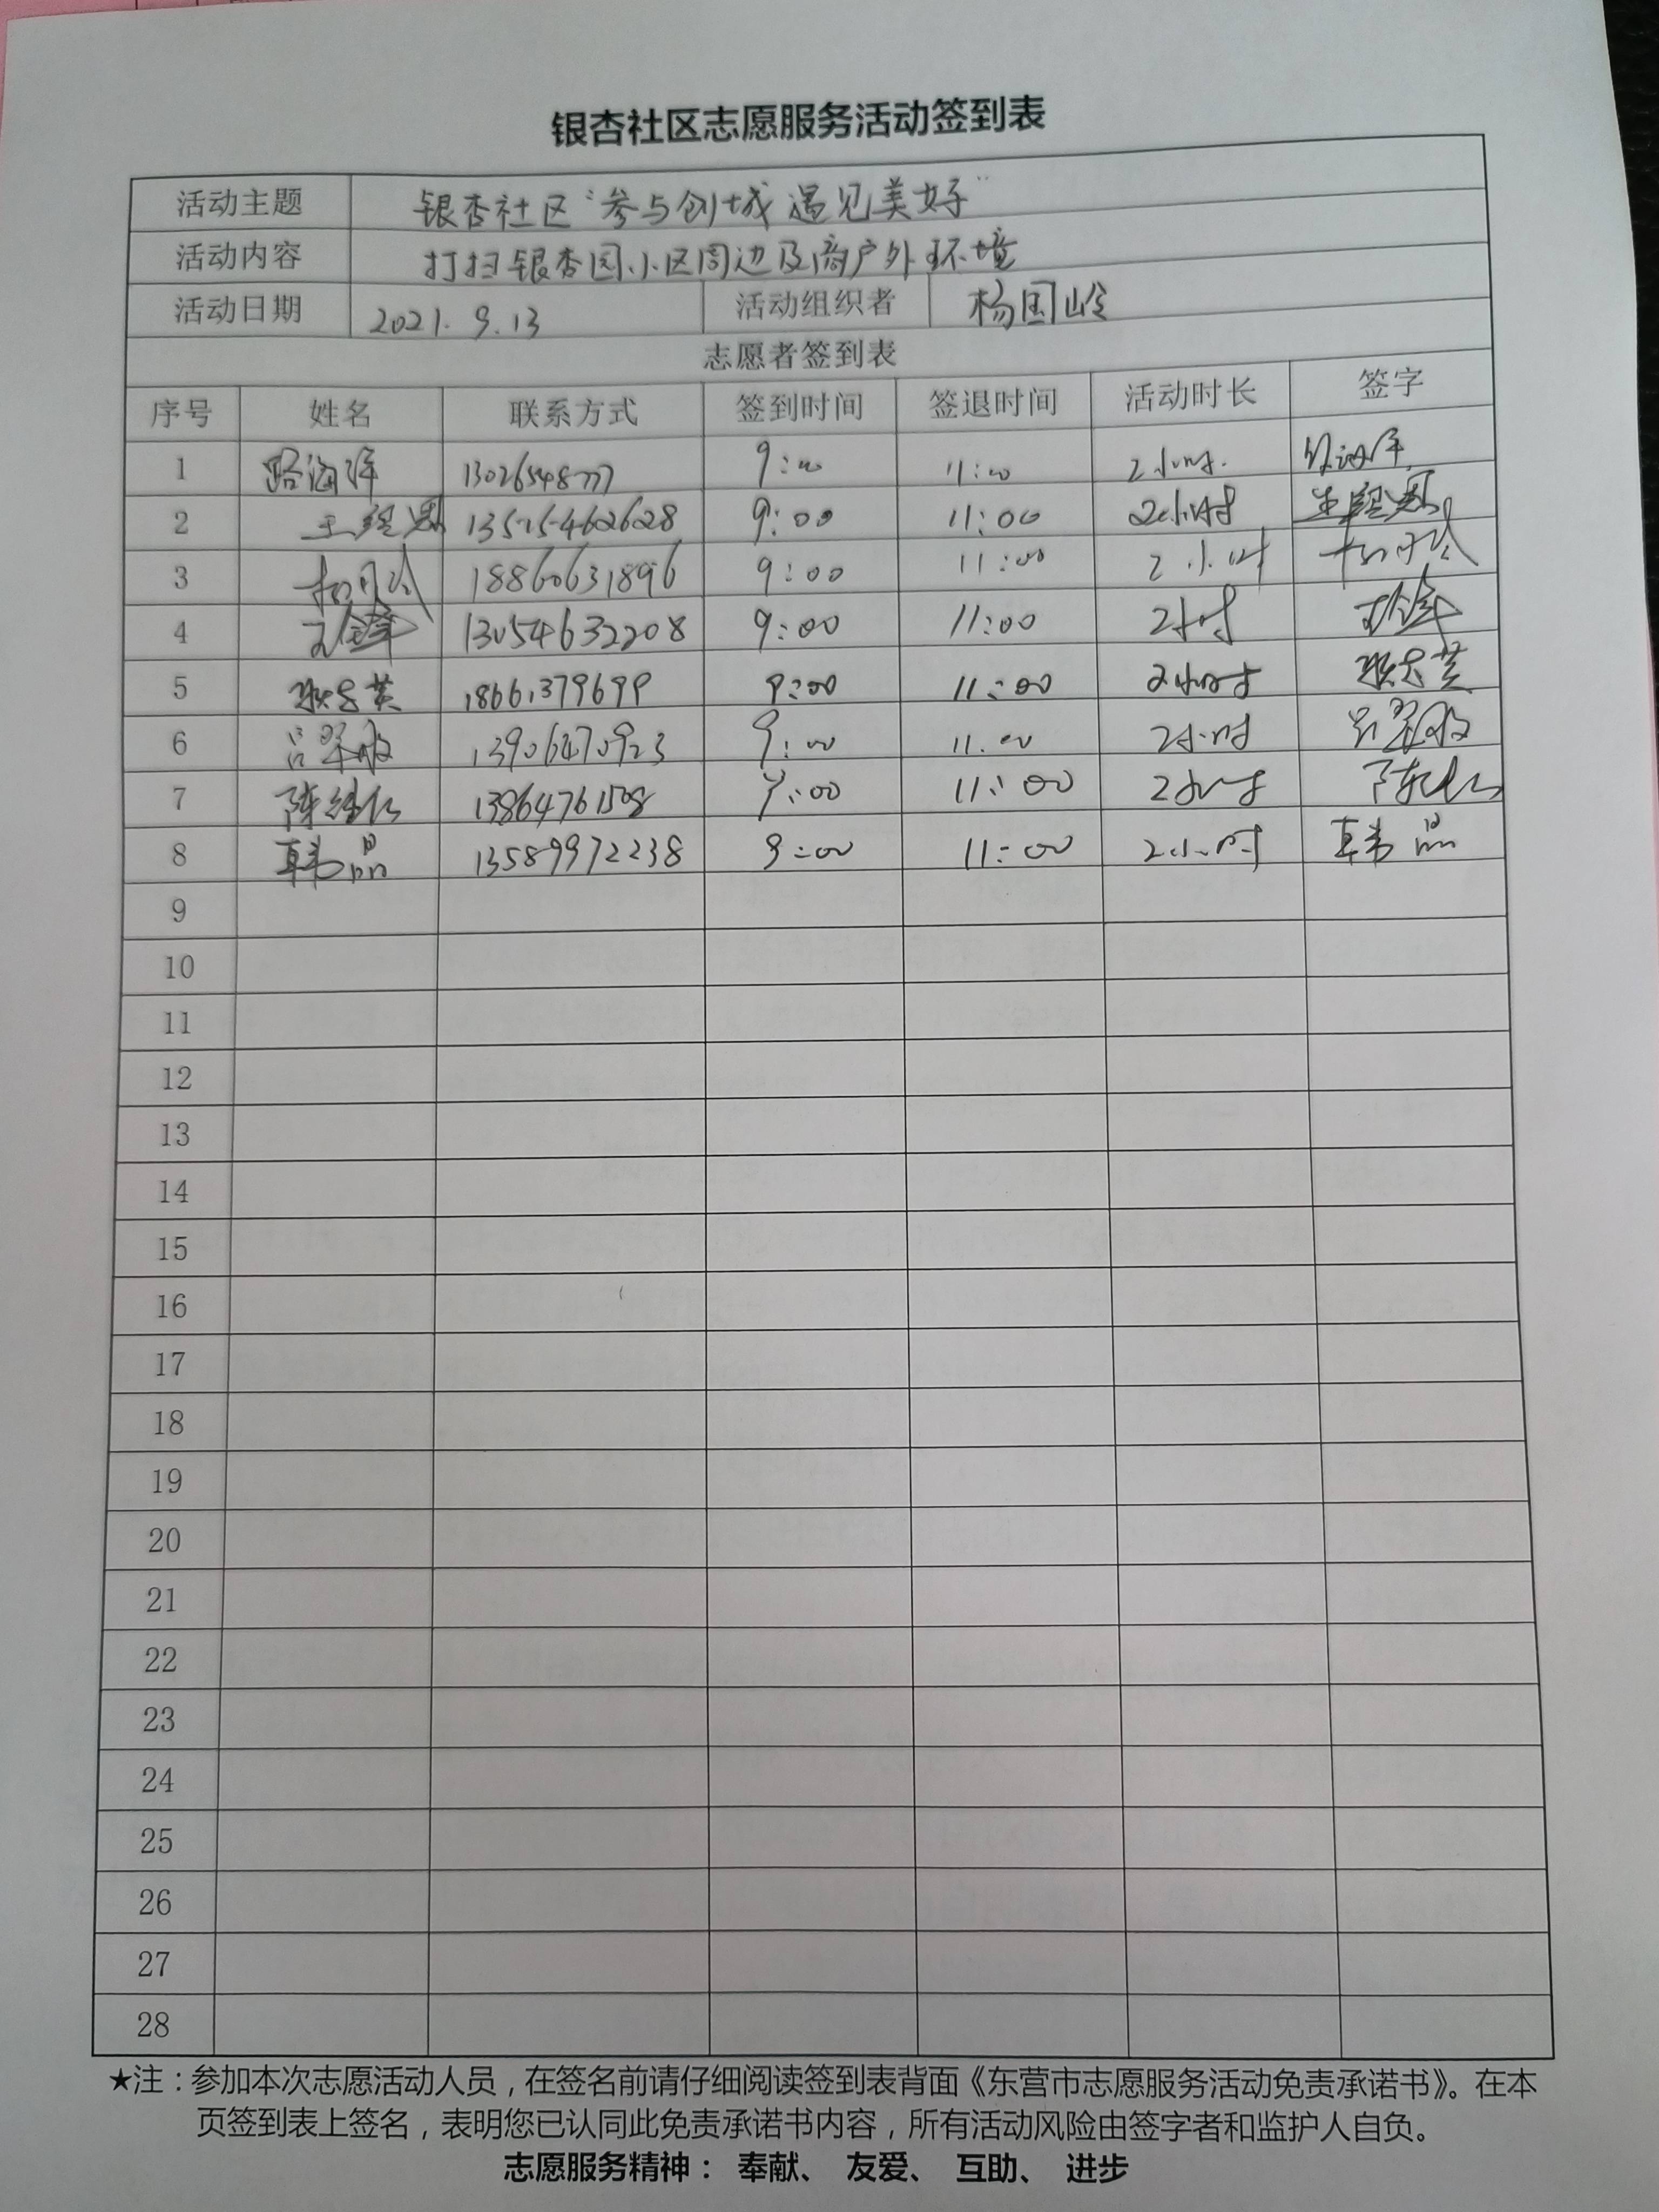 银杏社区志愿服务活动签到表
活动主题 银杏社区“参与创城 遇见美好”
活动内容 打扫银杏园小区周边及商户外环境
活动日期 2021. 9. 13 活动组织者 杨国岭
志愿者签到表
序号 姓名 联系方式 签到时间 签退时间 活动时长 签字
1 路海洋 13026548777 9:00 11:00 2小时. 路海洋
2 13515462628 9:00 11:00 2小时
3 18860631896 9:00 11:00 2小时
4 13054632208 9:00 11:00 2小时
5 18661379699 9:00 11:00 2小时
6 吕翠敏 13906470923 9:00 11:00 2小时 吕翠敏
7 13864761508 9:00 11:00 2小时
8 韩晶 13589972238 9:00 11:00 2小时 韩晶
9
10
11
12
13
14
15
16
17
18
19
20
21
22
23
24
25
26
27
28
★注：参加本次志愿活动人员，在签名前请仔细阅读签到表背面《东营市志愿服务活动免责承诺书》。在本
页签到表上签名，表明您已认同此免责承诺书内容，所有活动风险由签字者和监护人自负。
志愿服务精神： 奉献、 友爱、 互助、 进步